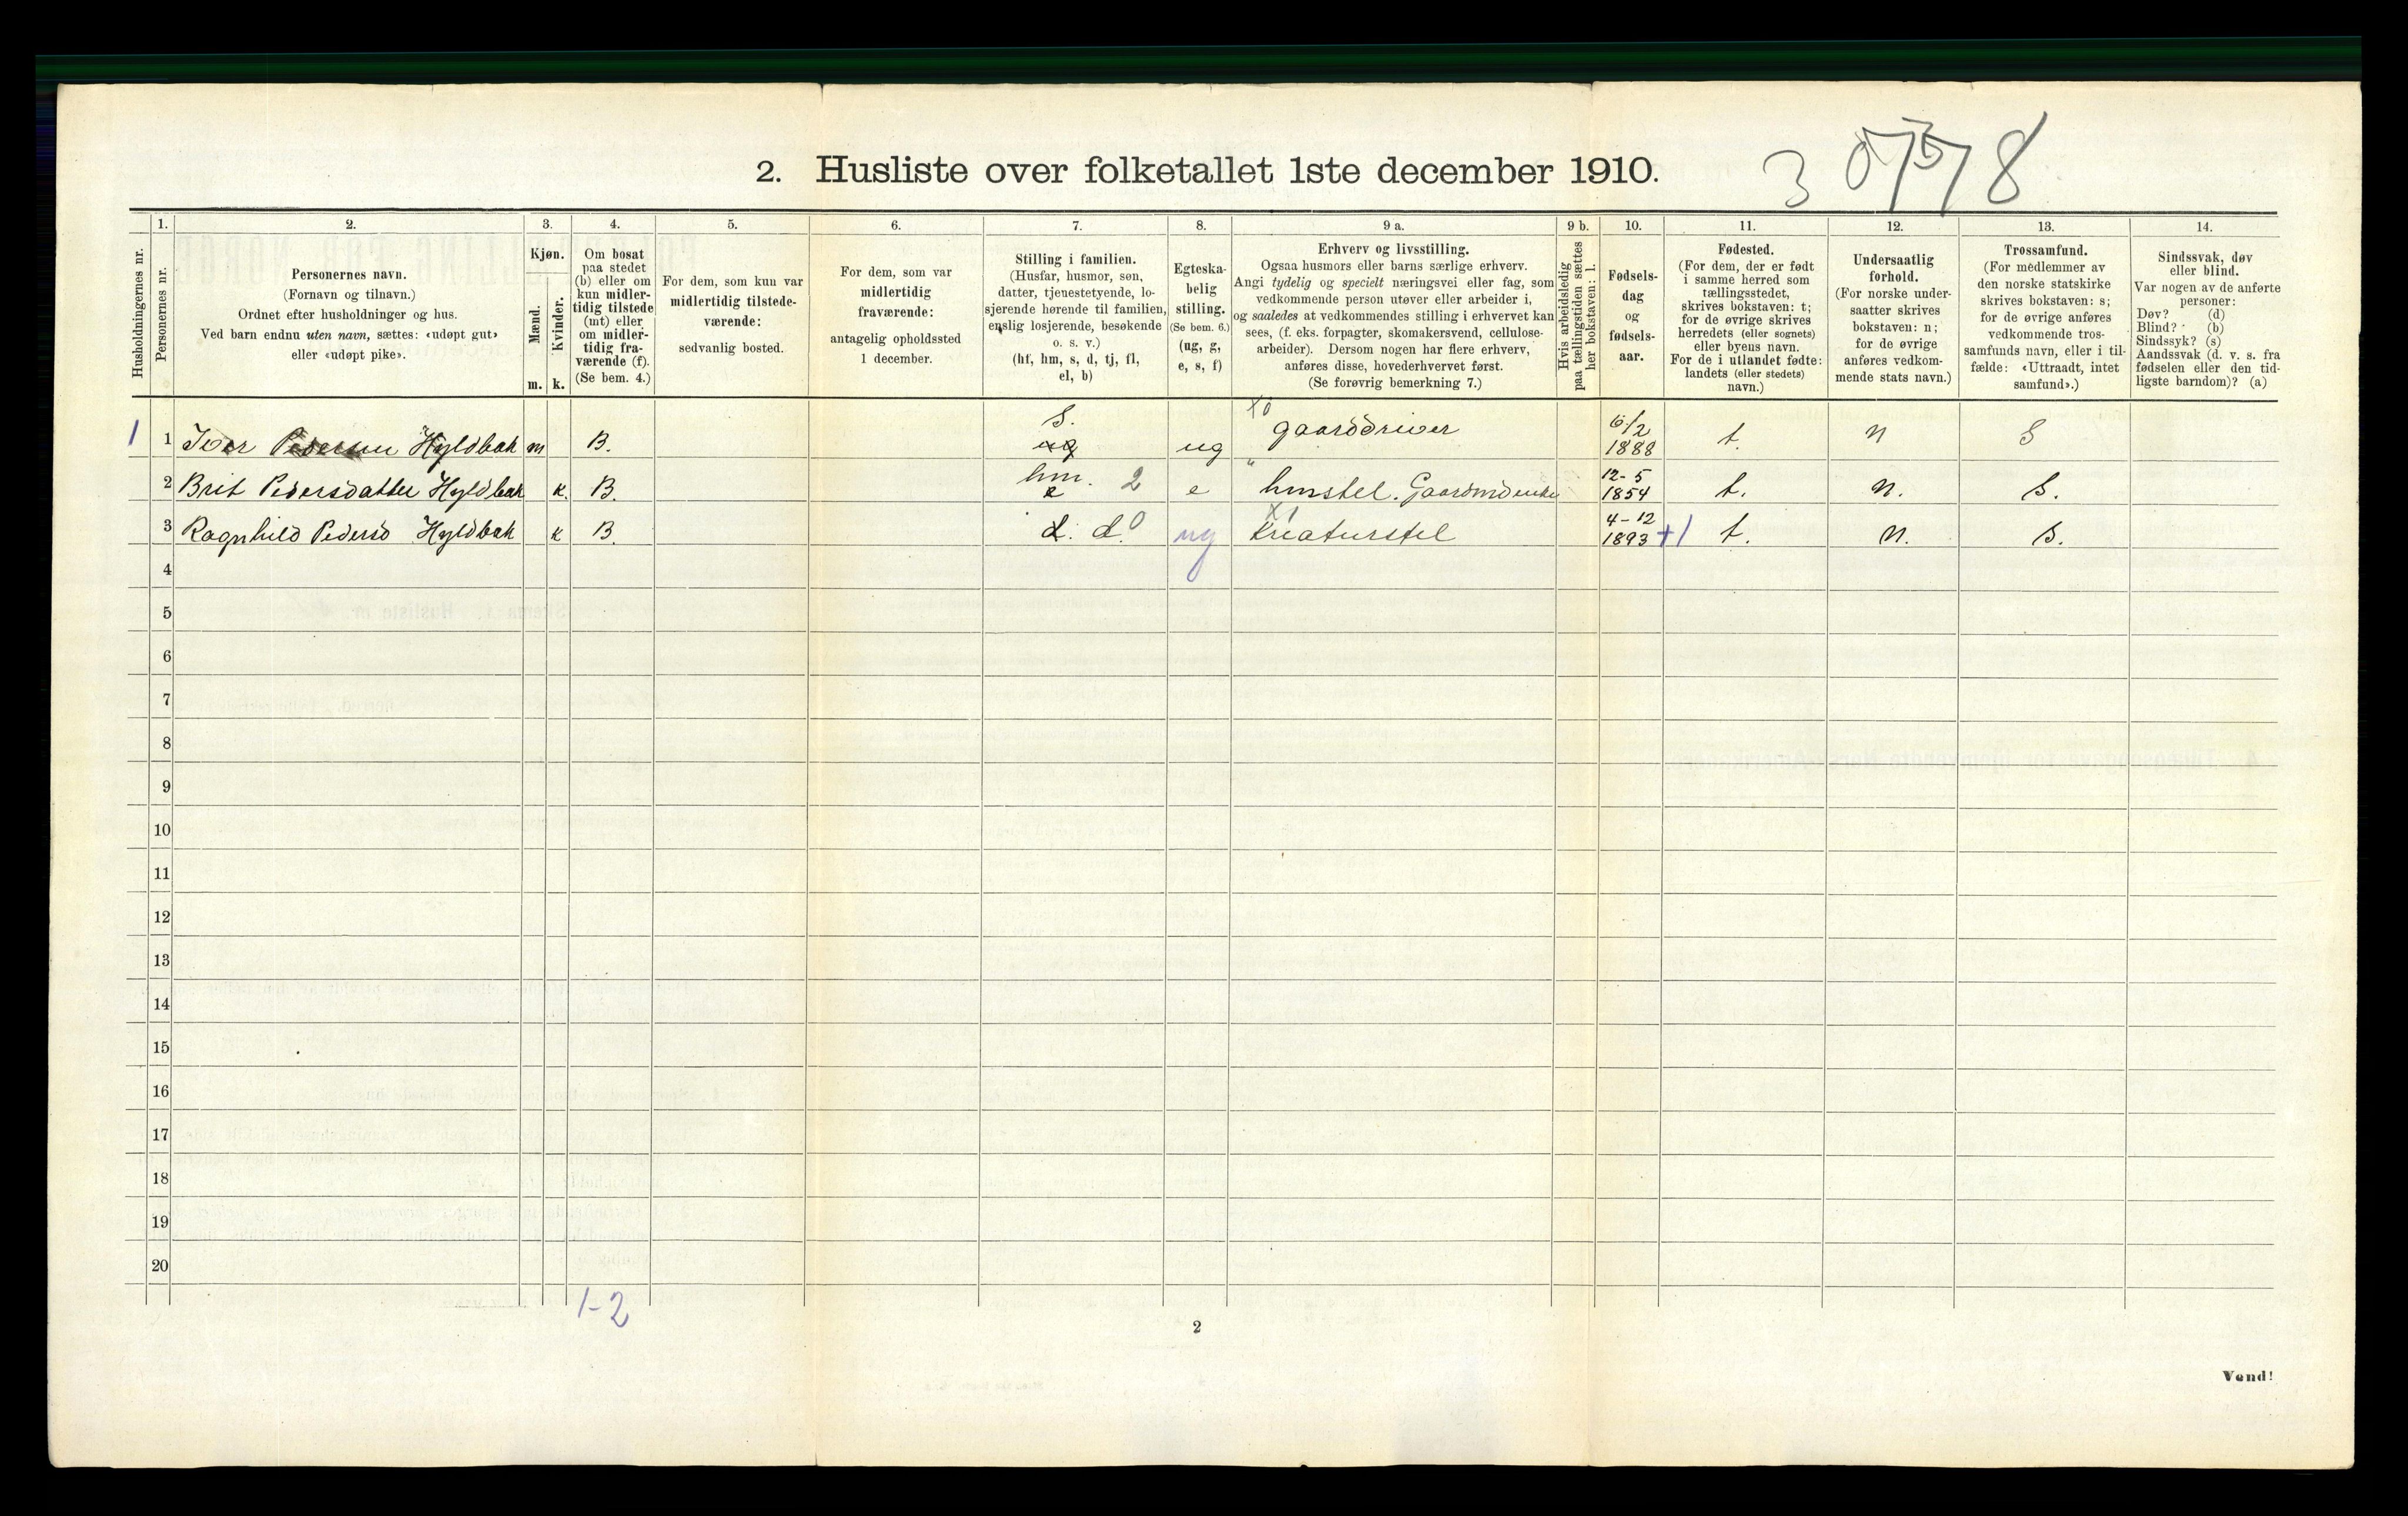 2. Husliste over folketallet 1ste december 1910.
Husholdningernes nr.
1.
Personernes nr.
2.
Personernes navn.
(Fornavn og tilnavn.)
Ordnet efter husholdninger og hus.
Ved barn endnu uten navn, sættes: «udøpt gut»
eller «udøpt pike».
3.
Kjøn.
Mænd.
Kvinder.
m. k.
4.
Om bosat
paa stedet
(b) eller om
kun midler-
tidig tilstede
(mt) eller
om midler-
tidig fra-
værende (f).
(Se bem. 4.)
5.
For dem, som kun var
midlertidig tilstede-
værende:
sedvanlig bosted.
6.
For dem, som var
midlertidig
fraværende:
antagelig opholdssted
1 december.
7.
Stilling i familien.
(Husfar, husmor, søn,
datter, tjenestetyende, lo-
sjerende hørende til familien,
enslig losjerende, besøkende
o. s. v.)
(hf, hm, s, d, tj, fl,
el, b)
8.
Egteska-
belig
stilling.
(Se bem. 6.)
(ug, g,
e, s, f)
9 a.
Erhverv og livsstilling.
Ogsaa husmors eller barns særlige erhverv.
Angi tydelig og specielt næringsvei eller fag, som
vedkommende person utøver eller arbeider i,
og saaledes at vedkommendes stilling i erhvervet kan
sees, (f. eks. forpagter, skomakersvend, cellulose-
arbeider). Dersom nogen har flere erhverv,
anføres disse, hovederhvervet først.
(Se forøvrig bemerkning 7.)
9 b.
Hvis arbeidsledig
paa tællingstiden sættes
her bokstaven: l.
10.
Fødsels-
dag
og
fødsels-
aar.
11.
Fødested.
(For dem, der er født
i samme herred som
tællingsstedet,
skrives bokstaven: t;
for de øvrige skrives
herredets (eller sognets)
eller byens navn.
For de i utlandet fødte:
landets (eller stedets)
navn.)
12.
Undersaatlig
forhold.
(For norske under-
saatter skrives
bokstaven: n;
for de øvrige
anføres vedkom-
mende stats navn.)
13.
Trossamfund.
(For medlemmer av
den norske statskirke
skrives bokstaven: s;
for de øvrige anføres
vedkommende tros-
samfunds navn, eller i til-
fælde: «Uttraadt, intet
samfund».)
14.
Sindssvak, døv
eller blind.
Var nogen av de anførte
personer:
Døv? (d)
Blind? (b)
Sindssyk? (s)
Aandssvak (d. v. s. fra
fødselen eller den tid-
ligste barndom)? (a)
1 1 Iver Pedersen Hyldbak m B. s. ug ug gaardbriver 6/2 1888 t. n S
2 Brit Pedersdatter Hyldbak k. B. hm. e 2 e husstel. 12-5 1854 t. n. s.
3 Ragnhild Pedersd Hyldbak k B d. d. 0 ug X1 Kreaturstel 4-12 1893 +1 t. n. s.
4
5
6
7
8
9
10
11
12
13
14
15
16
17
18
19
20
1-2
2
Vend!